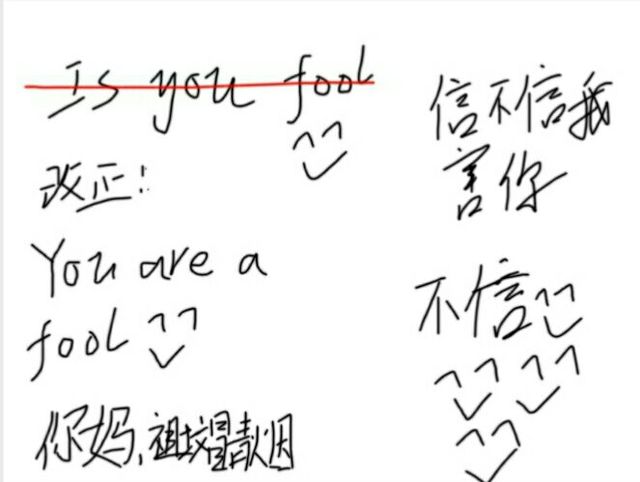 Is you fool
改正!
You are a
fool
你妈,祖坟冒青烟
信不信我
害你
不信